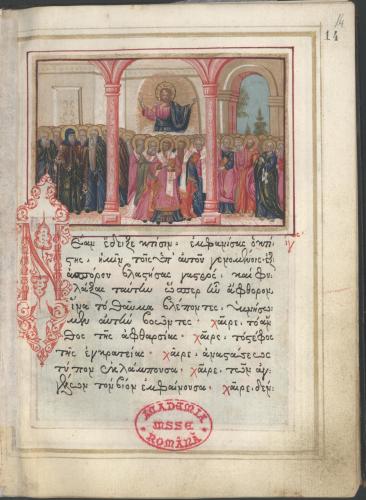 14
14
Νέαν ἔδειξε κτίσιν, ἐμφανίσας ὁ κτί
στης, ἡμῖν τοῖς ὑπ' αὐτοῦ γενομένοις· ἐξ
ἀσπόρου βλαστήσας γαστρός, καὶ φυ
λάξας ταύτην ὥσπερ ἦν ἄφθορον,
ἵνα τὸ θαῦμα βλέποντες, ὑμνήσω
μεν αὐτὴν βοῶντες· χαῖρε, τὸ ἄν
θος τῆς ἀφθαρσίας· χαῖρε, τὸ στέφος
τῆς ἐγκρατείας· χαῖρε, ἀναστάσεως
τύπον ἐκλάμπουσα· χαῖρε, τῶν ἀγ
γέλων τὸν βίον ἐμφαίνουσα· χαῖρε, δέν
ACADEMIA
MSSE
ROMÂNĂ